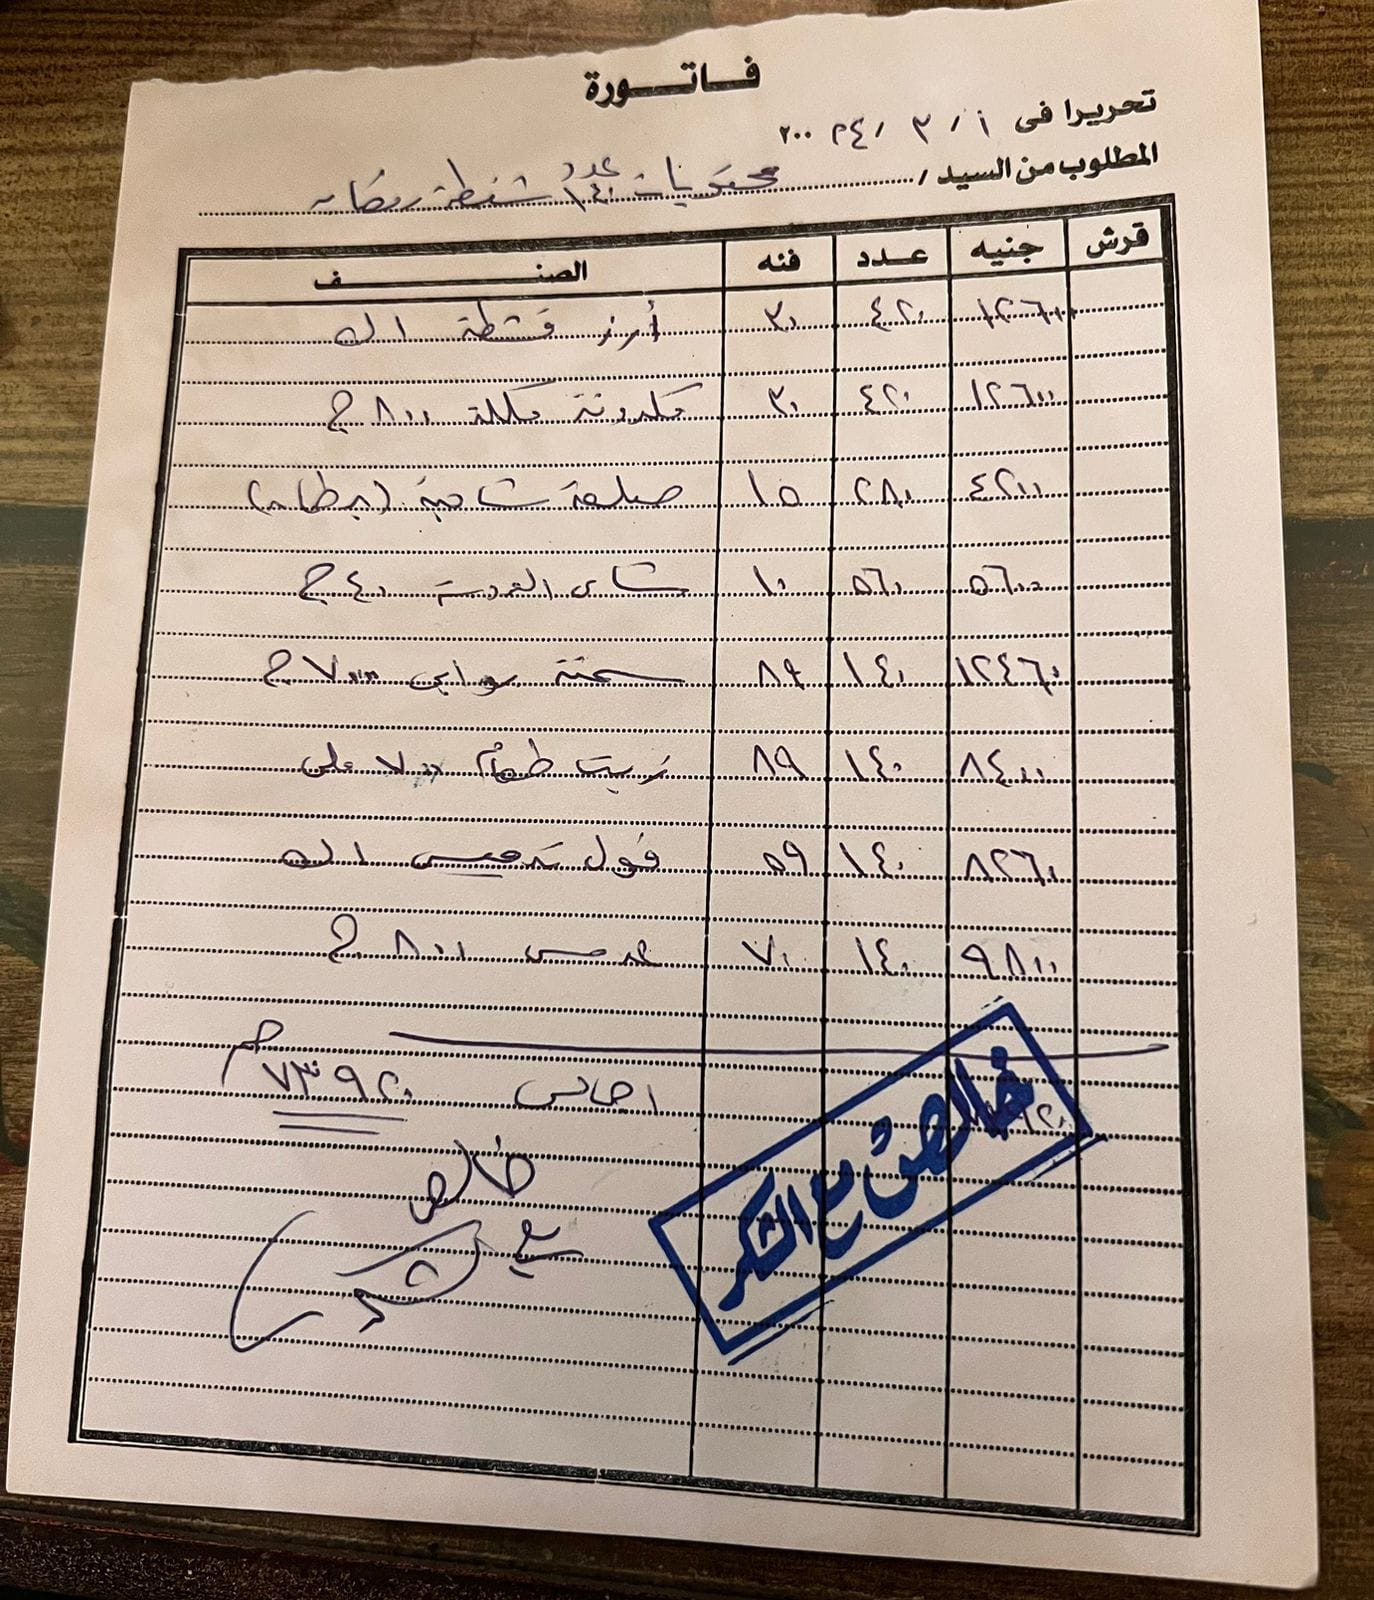 فاتورة
تحريرا فى ١ / ٣ / ٢٤ ٢٠٠
المطلوب من السيد / محتويات عدد ١٤٠ شنطة رمضان
قرش جنيه عدد فئه الصنف
١٢٦٠٠ ٤٢٠ ٣٠ أرز قشطة ١ ك
١٢٦٠٠ ٤٢٠ ٣٠ مكرونة مكلة ٨٠٠ ج
٤٢٠٠ ٢٨٠ ١٥ صلصة شاهية (برطمان)
٥٦٠٠ ٥٦٠ ١٠ شاى العروسة ٤٠ ج
١٢٤٦٠ ١٤٠ ٨٩ سمنة روابى ٧٠٠ ج
٨٤٠٠ ١٤٠ ٨٩ زيت طعام ٧٠٠ ملى
٨٢٦٠ ١٤٠ ٥٩ فول تدميس ١ ك
٩٨٠٠ ١٤٠ ٧٠ عدس ٨٠٠ ج
اجمالى ٧٣٩٢٠ ج
خالص
مع
الشكر
خالص مع الشكر